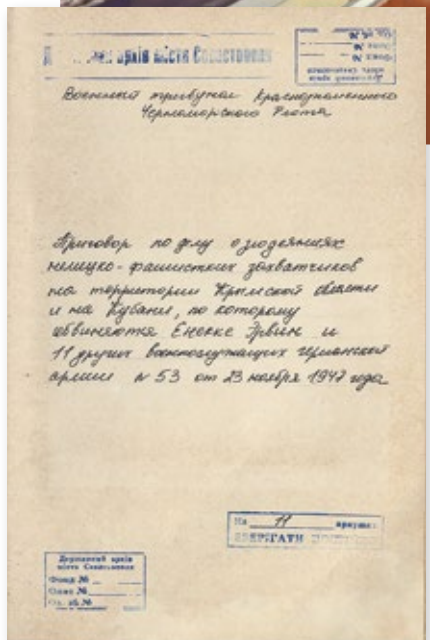 архів міста Севастополя
Державний архів
міста Севастополя
Фонд №
Опис №
Од. зб. №
Военный трибунал Краснознаменного
Черноморского Флота
Приговор по делу о злодеяниях
немецко-фашистских захватчиков
на территории Крымской области
и на Кубани, по которому
обвиняются Енекке Эрвин и
11 других военнослужащих германской
армии № 53 от 23 ноября 1947 года
На 11 аркушах
ЗБЕРІГАТИ
Державний архів
міста Севастополя
Фонд №
Опис №
Од. зб. №